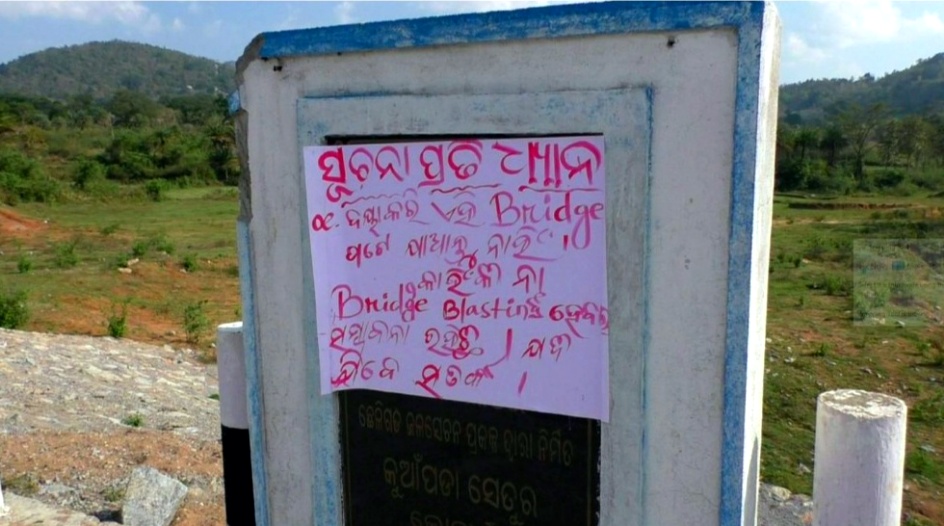 ସୂଚନା ପ୍ରତି ଧ୍ୟାନ
୦୧. ଦୟାକରି ଏହି Bridge
ପଟେ ଯାଆନ୍ତୁ ନାହିଁ ।
କାହିଁକି ନା
Bridge Blasting ହେବାର
ସମ୍ଭାବନା ରହିଛି ।
ସତର୍କ ।
ଜଳସେଚନ ପ୍ରକଳ୍ପ ଦ୍ଵାରା ନିର୍ମିତ
କୁଆଁପଡା ସେତୁର